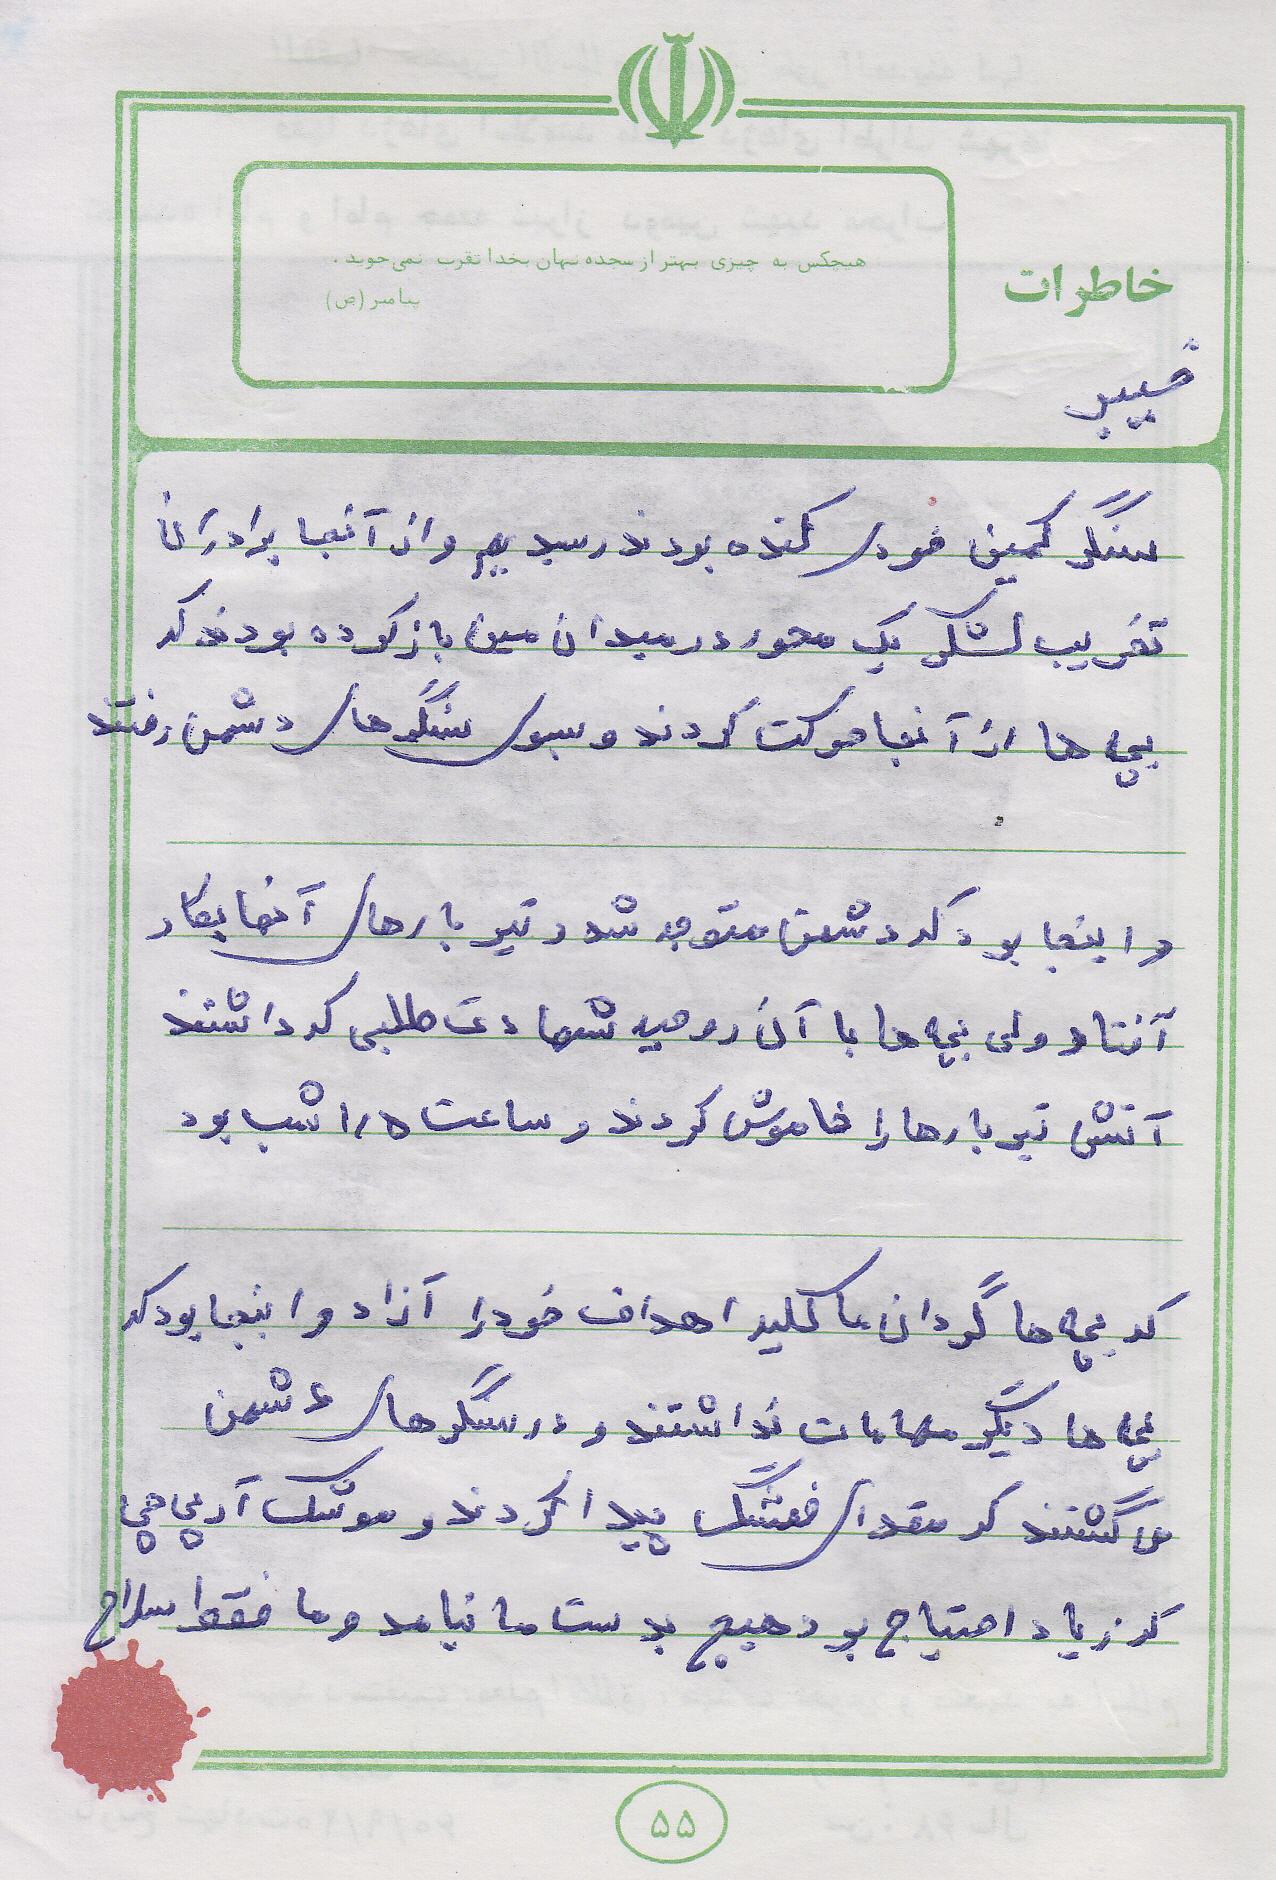 هیچکس به چیزی بهتر از سجده نهان بخدا تقرب نمی‌جوید .
پیامبر (ص)
خاطرات
خیبر
سنگر کمین خودی کنده بودند رسیدیم و از آنجا برادران
تخریب لشکر یک محور در میدان مین باز کرده بودند که
بچه ها از آنجا حرکت کردند و سوی سنگرهای دشمن رفتند
و اینجا بود که دشمن متوجه شد و تیربارهای آنها بکار
آفتاد ولی بچه ها با آن روحیه شهادت طلبی که داشتند
آتش تیربارها را خاموش کردند و ساعت ۱/۵ شب بود
که بچه ها گردان ما کلیه اهداف خود را آزاد و اینجا بود که
بچه ها دیگر مهامات نداشتند و در سنگرهای دشمن
می گشتند که مقدای فشنگ پیدا کردند و موشک آرپی جی
که زیاد احتیاج بود هیچ بدست ما نیامد و ما فقط سلاح
۵۵